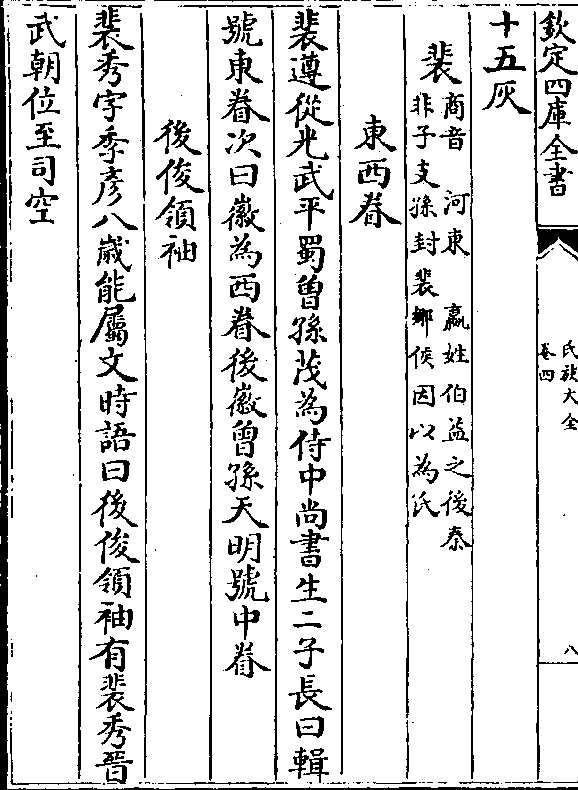 欽定四庫全書
氏族大全
卷四
八
十五灰
裴
商音　河東　嬴姓伯益之後秦
非子支孫封裴鄉侯因以為氏
東西眷
裴遵從光武平蜀曾孫茂為侍中尚書生二子長曰輯
號東眷次曰徽為西眷後徽曾孫天明號中眷
後俊領袖
裴秀字季彥八歲能屬文時語曰後俊領袖有裴秀晉
武朝位至司空